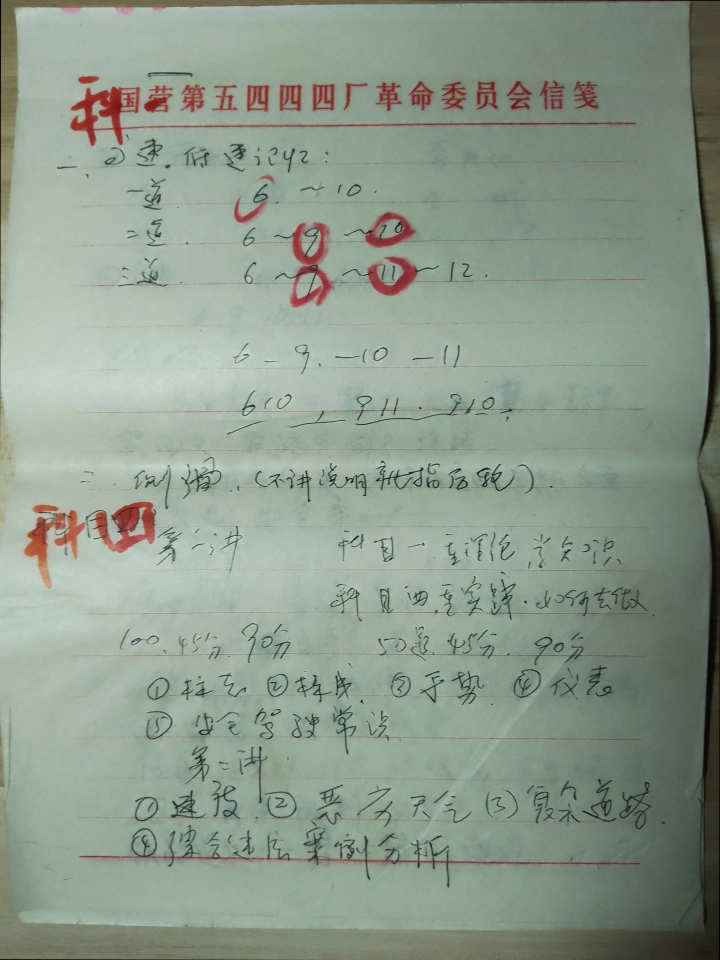 科一
国营第五四四四厂革命委员会信笺
一、高速.低速记忆:
一道 6 ~ 10.
二道. 6 ~ 9 ~ 10
三道. 6 ~ 9 ~ 11 ~ 12.
6 - 9. - 10 - 11
610, 911. 910.
二. 侧滑.(不讲说明就指后轮).
科四
科目四:
第一讲 科目一重理论常知识
科目四重实践.如何去做.
100. 45分. 90分 50题. 45分. 90分
①标志 ②标线 ③手势 ④仪表
⑤安全驾驶常识
第二讲.
①速度. ②恶劣天气 (3)复杂道路.
④综合违法案例分析